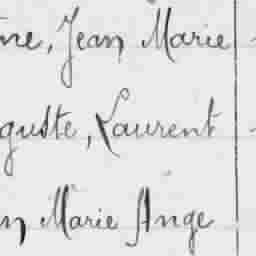 ne, Jean Marie
guste, Laurent
n Marie Ange